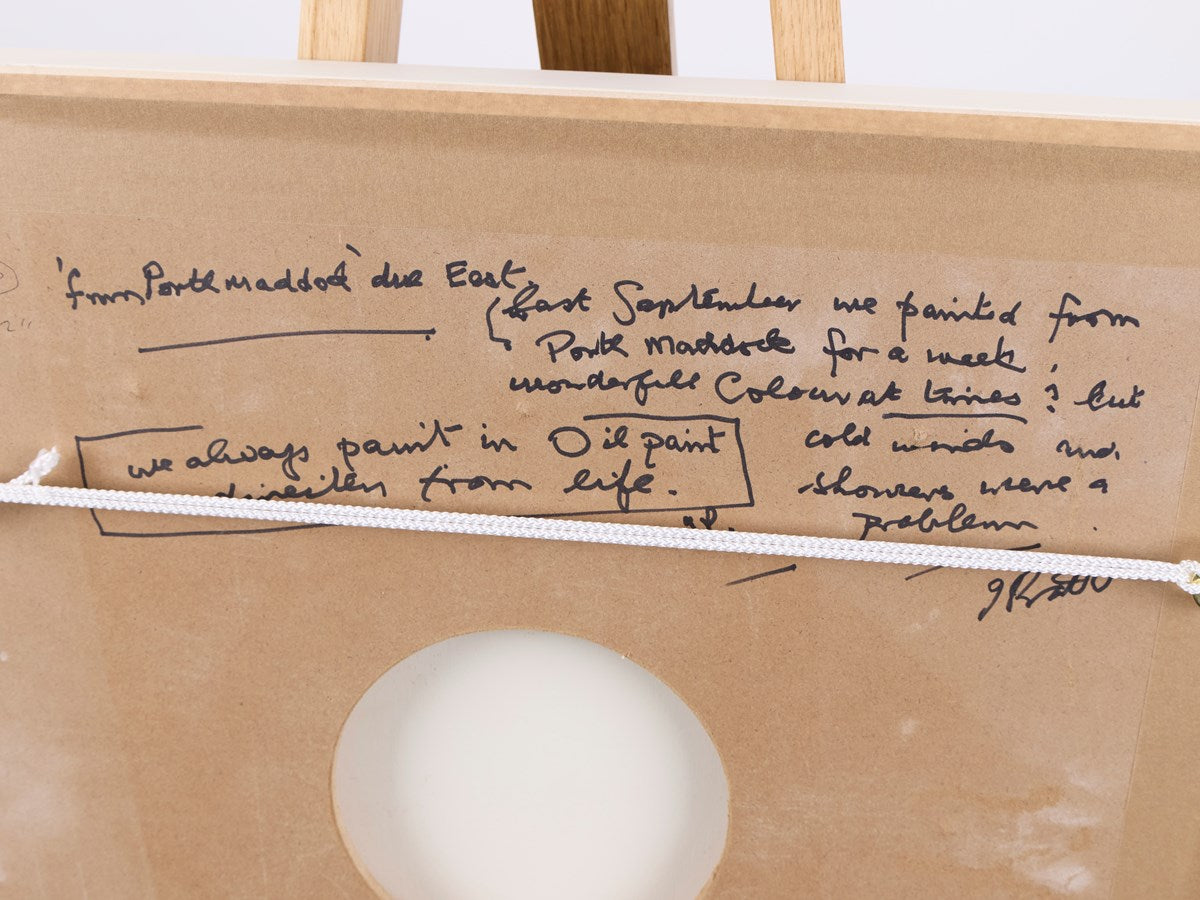 'from Porthmaddock' due East.
Last September we painted from
Porth Maddock for a week,
wonderfull Colour at times? but
cold winds and
showers were a
problem
we always paint in Oil paint
directly from life.